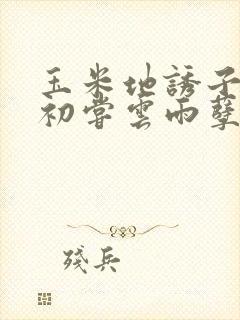 玉米地誘子
初嘗雲雨孽
殘兵